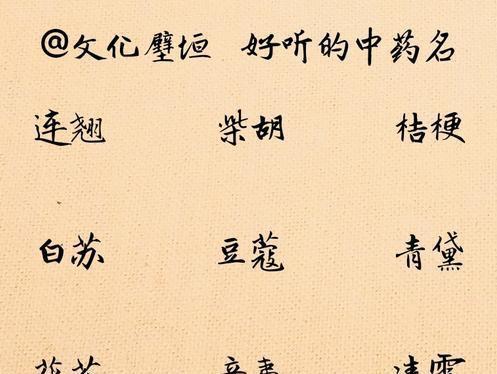 @文化壁垣 好听的中药名
连翘 柴胡 桔梗
白苏 豆蔻 青黛